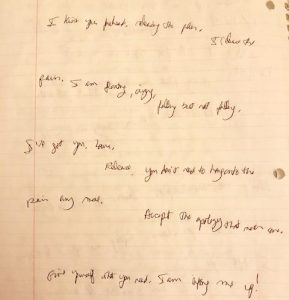 I kiss your forehead, releasing the pain.
I release the
pain. I am floating, dizzy,
falling but not falling.
I've got you, love.
Release. you don't need to hang onto the
pain any more.
Accept the apology that never came.
Give yourself what you need. I am lifting me up!